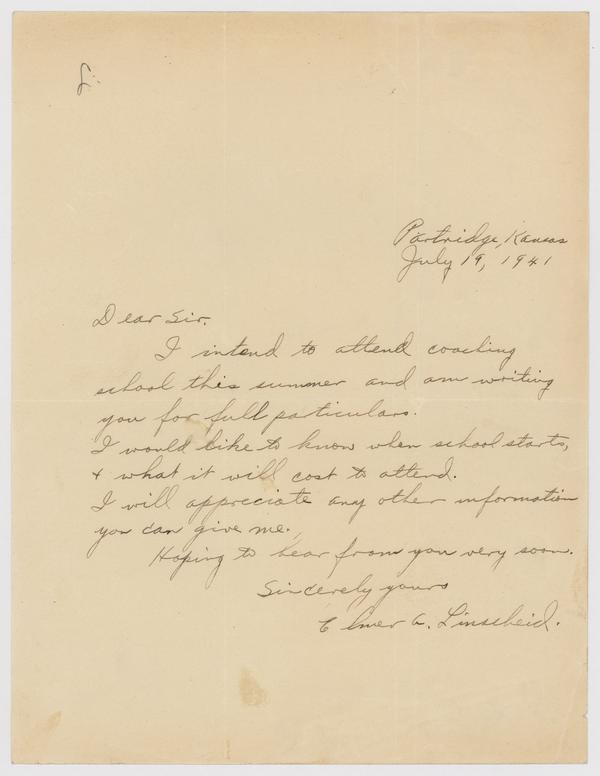 Partridge, Kansas
July 19, 1941
Dear Sir.
I intend to attend coaching
school this summer and am writing
you for full particulars.
I would like to know when school starts,
+ what it will cost to attend.
I will appreciate any other information
you can give me.
Hoping to hear from you very soon.
Sincerely yours
Elmer A. Linscheid.